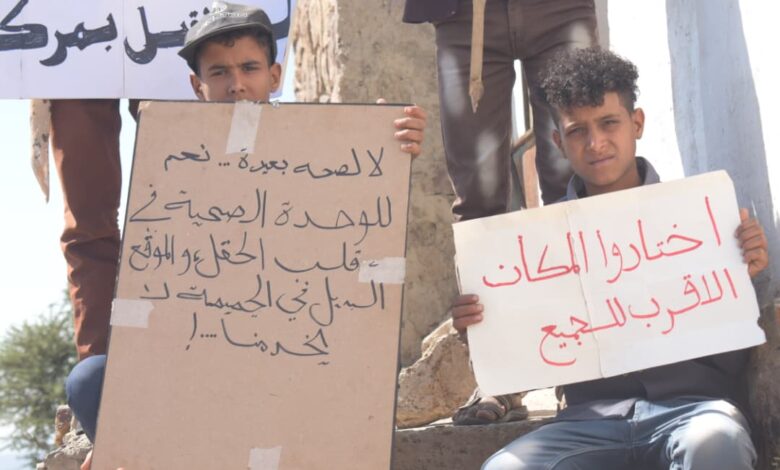 لا لصحه بعيدة ... نعم
للوحدة الصحية في
قلب الحقل، والموقع
البديل في الجميمة لا
يخدمنا ....!
اختاروا المكان
الاقرب للجميع